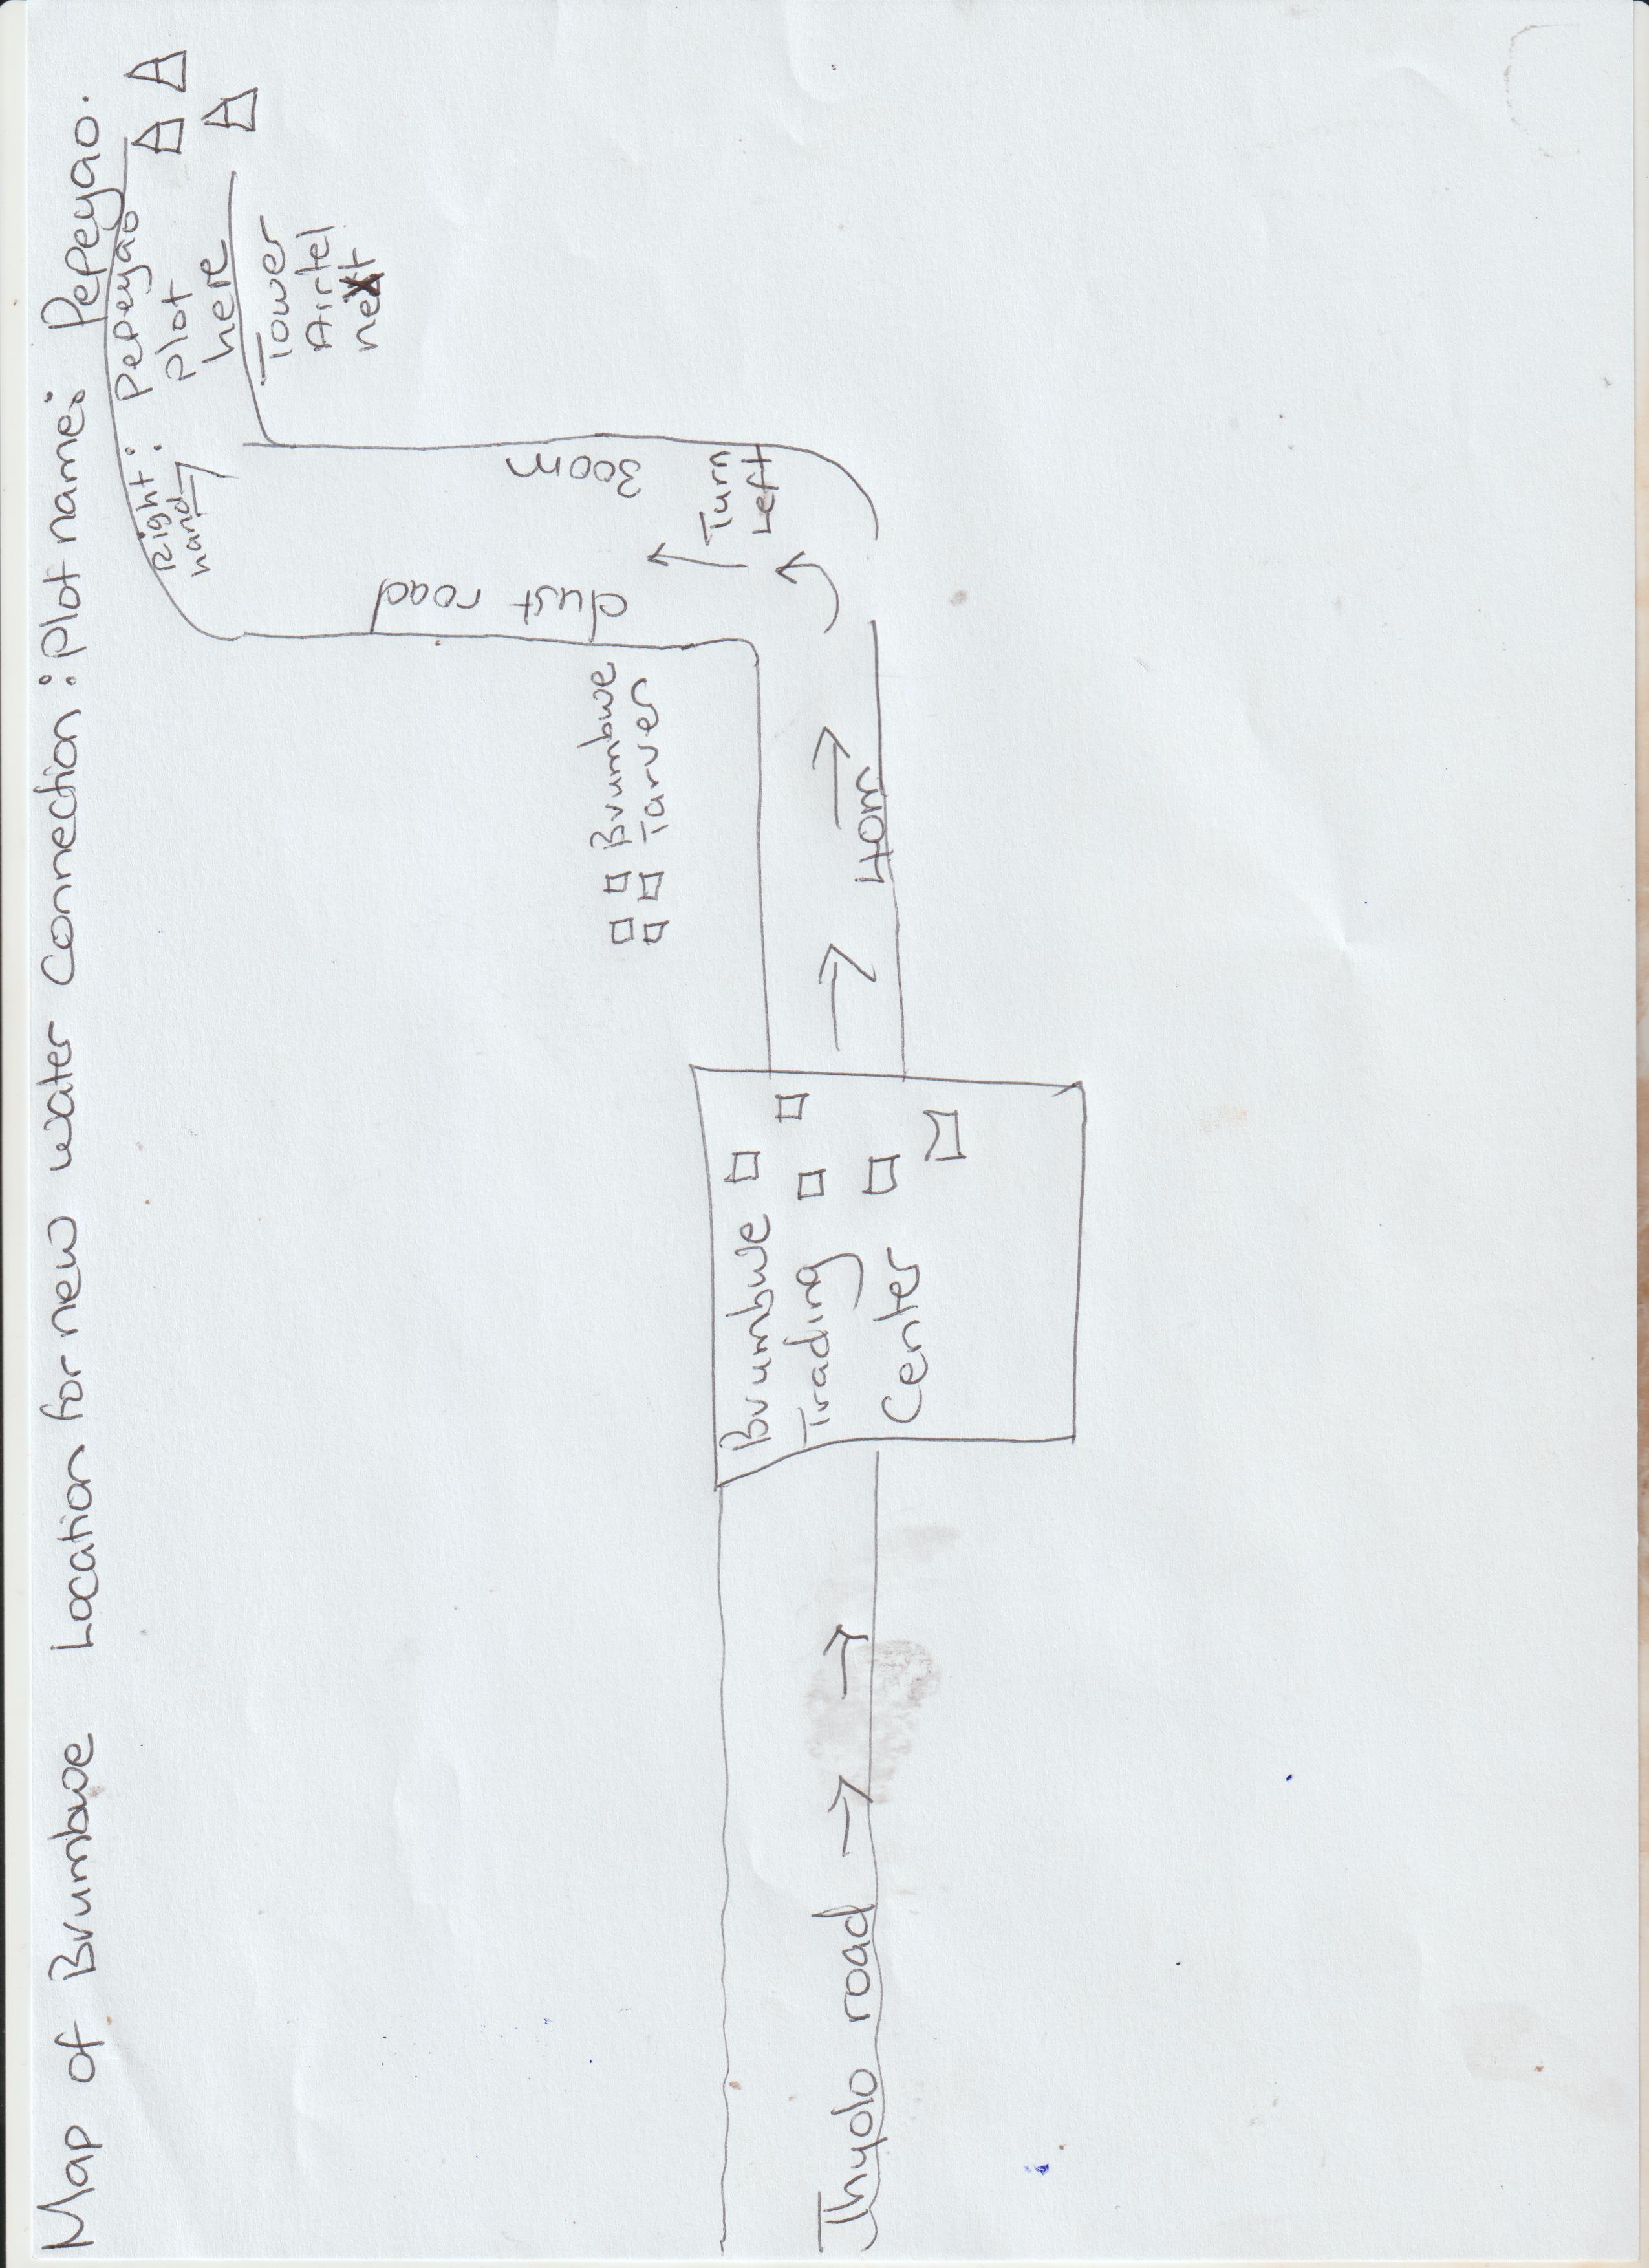 Map of Bvumbwe Location for new water Connection : plot name: Pepeyao.
Right : Pepeyao
hand
plot
here
Tower
Airtel
next
300m
dust road
Turn
Left
Bvumbwe
Tarven
40m
Bvumbwe
Trading
Center
Thyolo road